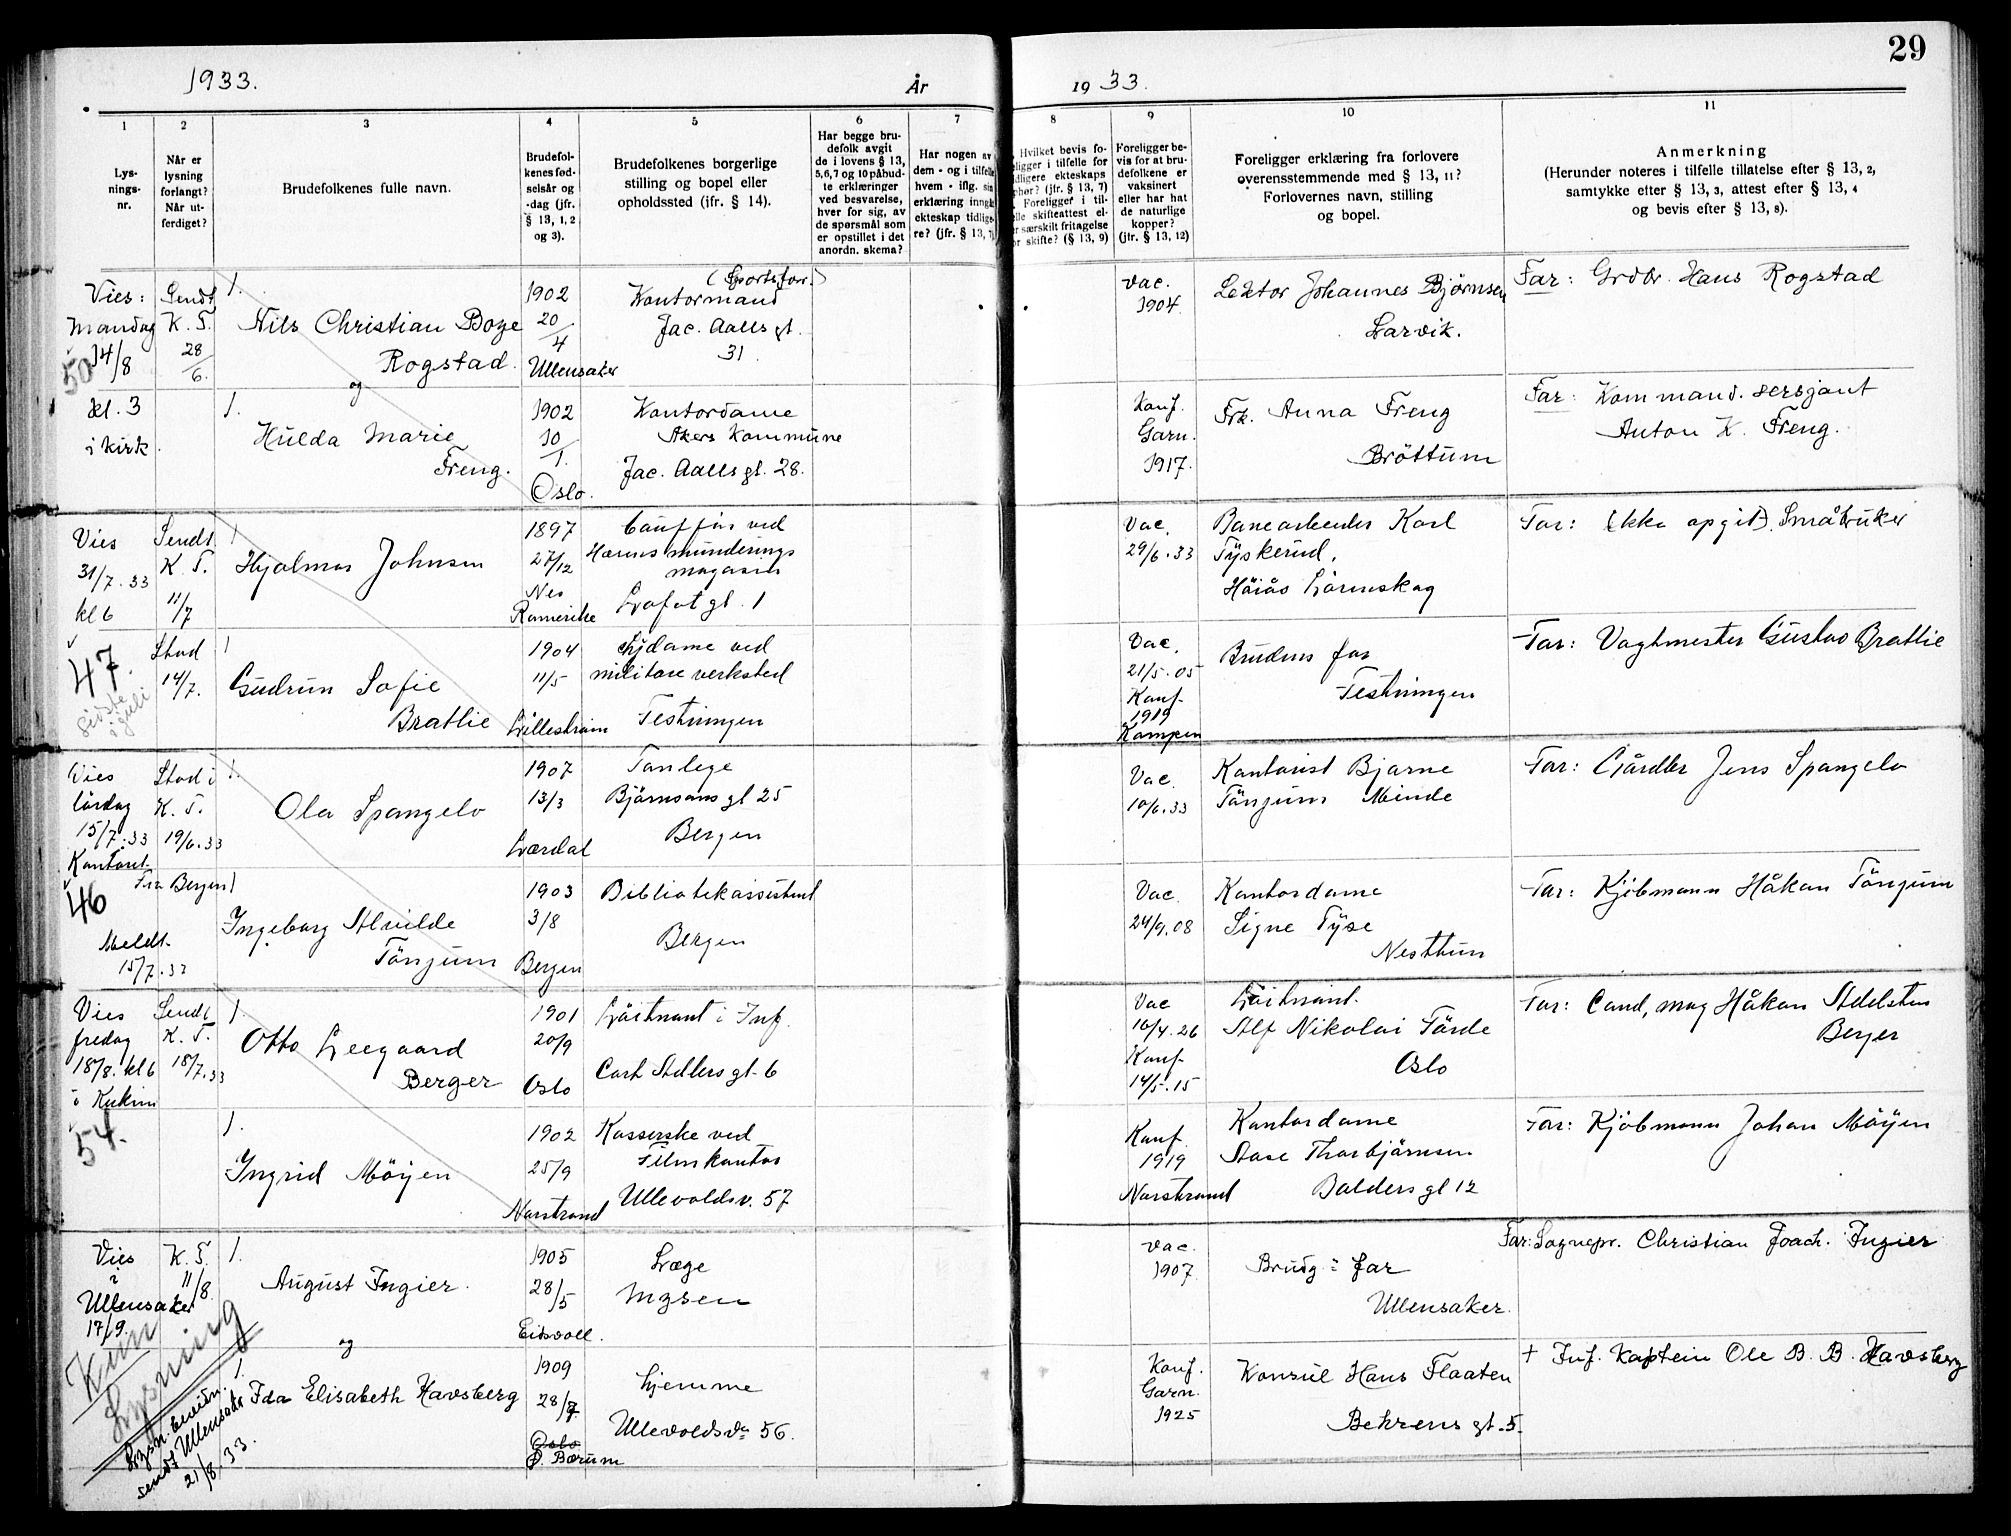 29
1933.
År
1933.
1
2
3
4
5
6
7
8
9
10
11
Lys-
nings-
nr.
Når er
lysning
forlangt?
Når ut-
ferdiget?
Brudefolkenes fulle navn.
Brudefol-
kenes fød-
selsår og
-dag (jfr.
§ 13, 1, 2
og 3).
Brudefolkenes borgerlige
stilling og bopel eller
opholdssted (jfr. § 14).
Har begge bru-
defolk avgit
de i lovens § 13,
5,6,7 og 10 påbud-
te erklæringer
ved besvarelse,
hver for sig, av
de spørsmål som
er opstillet i det
anordn. skema?
Har nogen av
dem - og i tilfelle
hvem - iflg. sin
erklæring inngå
ekteskap tidlige-
re? (jfr. § 13, 7)
Hvilket bevis fo-
religger i tilfelle for
tidligere ekteskaps
ophør? (jfr. § 13, 7)
Foreligger i til-
felle skifteattest el-
ler særskilt fritagelse
for skifte? (§ 13, 9)
Foreligger be-
vis for at bru-
defolkene er
vaksinert
eller har hat
de naturlige
kopper?
(jfr. § 13, 12)
Foreligger erklæring fra forlovere
overensstemmende med § 13, 11?
Forlovernes navn, stilling
og bopel.
Anmerkning
(Herunder noteres i tilfelle tillatelse efter § 13, 2,
samtykke efter § 13, 3, attest efter § 13, 4
og bevis efter § 13, 8).
Vies:
Mandag
14/8
50
kl. 3
i kirk.
Sendt
K. T.
28/6.
1.
Nils Christian Boye
Rogstad.
og
1902
20/4
Ullensaker
(Sportsforr.)
Kontormand
Jac. Aalls gt.
31.
vac.
1904
Lektor Johannes Björnsen
Larvik.
Far: Grdbr. Hans Rogstad
1.
Hulda Marie
Freng.
1902
10/1.
Oslo.
Kontordame
Akers Kommune
Jac. Aalls gt. 28.
Konf.
Garn.
1917.
Frk. Anna Freng
Bröttum
Far: Kommand. sersjant
Anton K. Freng.
Vies
31/7.33
kl 6
47.
sidste
i juli
Sendt
K. T.
11/7
1
Hjalmar Johnsen
1897
27/12
Nes
Romerike
Cauffør ved
Hærens munderings
magasin
Lofot gt. 1
Vac.
29/6.33
Banearbeider Karl
Tyskerud,
Höiås Lörenskog
Far: (Ikke opgit). Småbruker
Stod
14/7.
1
Gudrun Sofie
Bratlie
1904
11/5
Lilleström
Sydame ved
militære verksted
Festningen
Vac.
21/5.05
Konf.
1919
Kampen
Brudens far
Festningen
Far: Vagtmester Gustav Bratlie
Vies
lördag
15/7.33
Kontoret.
46
Meldt
15/7.33
Stod i
K. T.
19/6.33
Fra Bergen
1.
Ola Spangelo
1907
13/3
Lærdal
Tanlege
Björnsons gt 25
Bergen
Vac.
10/6.33
Kontorist Bjarne
Tönjum Minde
Far: Gårdbr Jens Spangelo
1
Ingeborg Alvilde
Tönjum
1903
3/8
Bergen
Bibliotekassistent
Bergen
Vac.
24/9.08
Kontordame
Signe Tyse
Nesttun
Far: Kjöbmann Håkon Tönjum
Vies
fredag
18/8. kl 6
i Kirken
54.
Sendt
K. T.
18/7.33
1.
Otto Leegaard
Berger
1901
20/9
Oslo
Löitnant i Inf.
Carl Adlers gt. 6
Vac
16/4.26
Konf.
14/5.15
Löitnant
Alf Nikolai Förde
Oslo
Far: Cand. mag Håkon Adelsten
Berger
1.
Ingrid Möyen
1902
25/9
Norstrand
Kasserske ved
Filmkontor
Ullevoldsv. 57
Konf.
1919
Norstrand
Kontordame
Aase Thorbjörnsen
Balders gt 12
Far: Kjöbmann Johan Möyen
Vies
i
Ullensaker
17/9.
Kun
Lysning
Lysn. bevidn.
sendt Ullensaker
21/8.33.
K. T.
11/8
1.
August Ingier.
og
1905
28/5
Eidsvoll.
Læge
Mysen
vac.
1907
Brudg.s far
Ullensaker.
Far: Sognepr. Christian Joach. Ingier
1.
Ida Elisabeth Havsberg
1909
28/7
Oslo
Ö. Bærum
hjemme
Ullevoldsvn 56.
Konf.
Garn.
1925
Konsul Hans Flaaten
Behrens gt. 5.
+ Inf. Kaptein Ole B. B. Havsberg